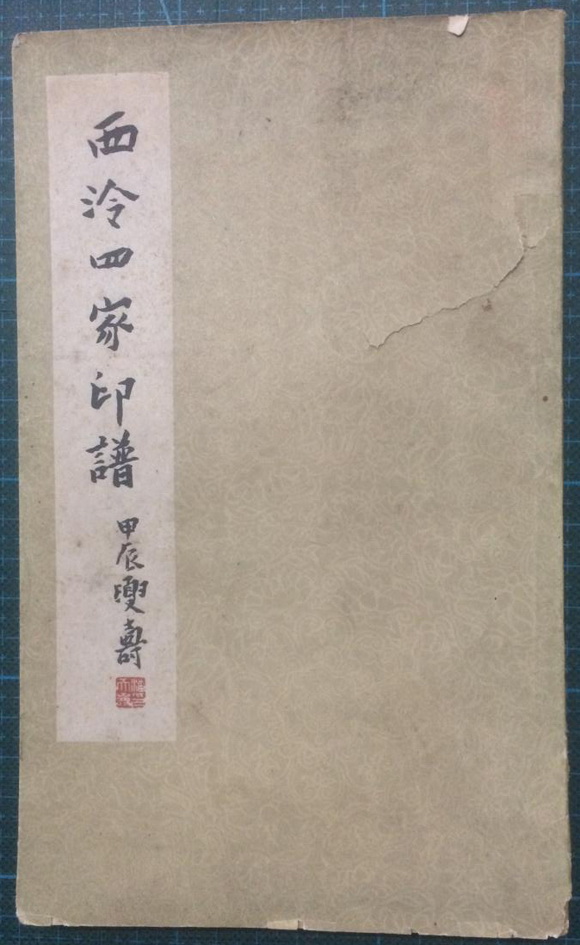 西泠四家印譜
甲辰 壽